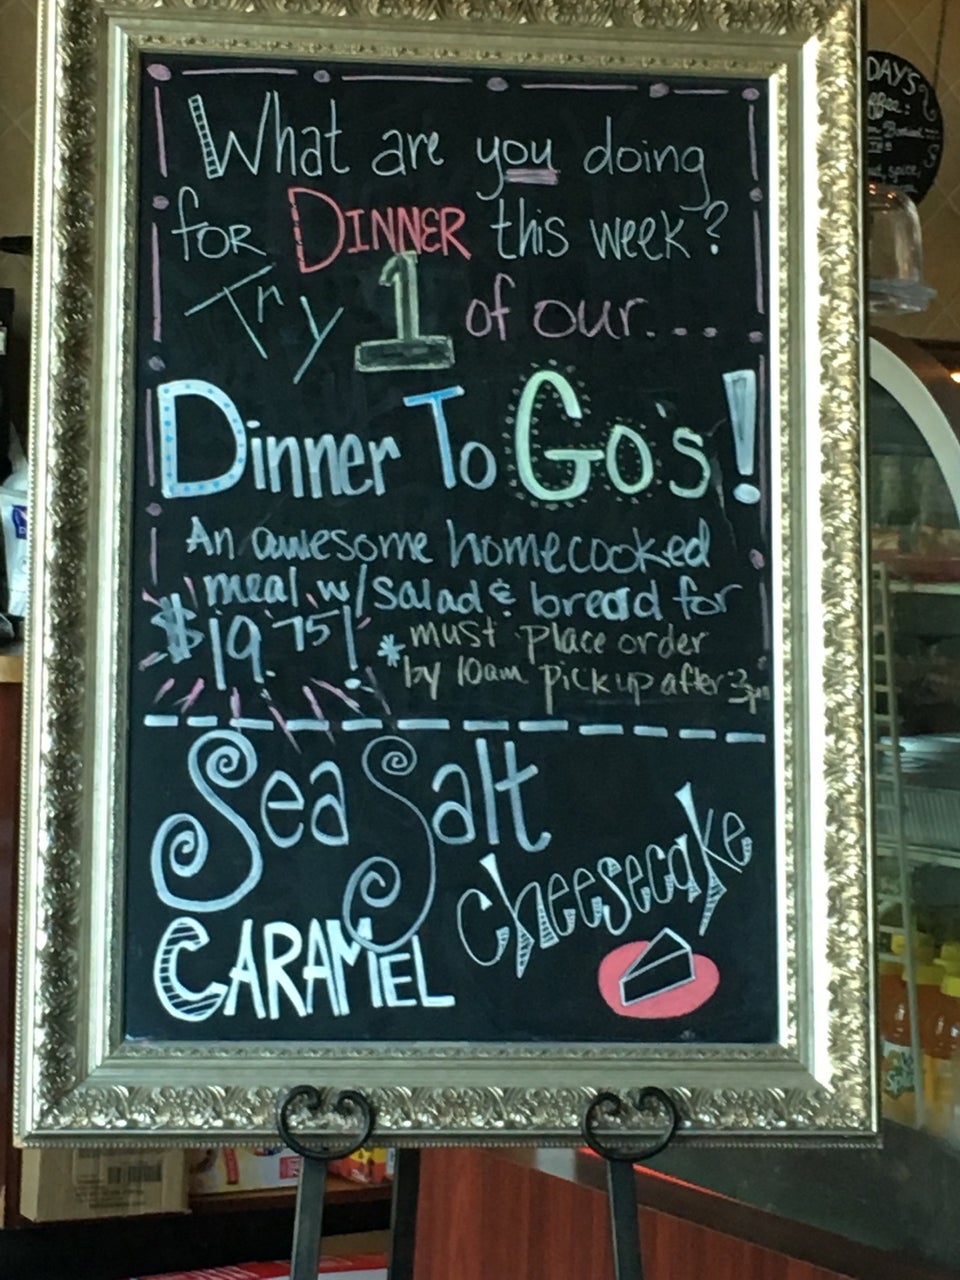 What are you doing
for DINNER this week?
Try 1 of our...
Dinner To Go's!
An awesome homecooked
meal w/salad & bread for
$19.75! *must place order
by 10am pickup after 3pm
Sea Salt
CARAMEL Cheesecake
DAY'S